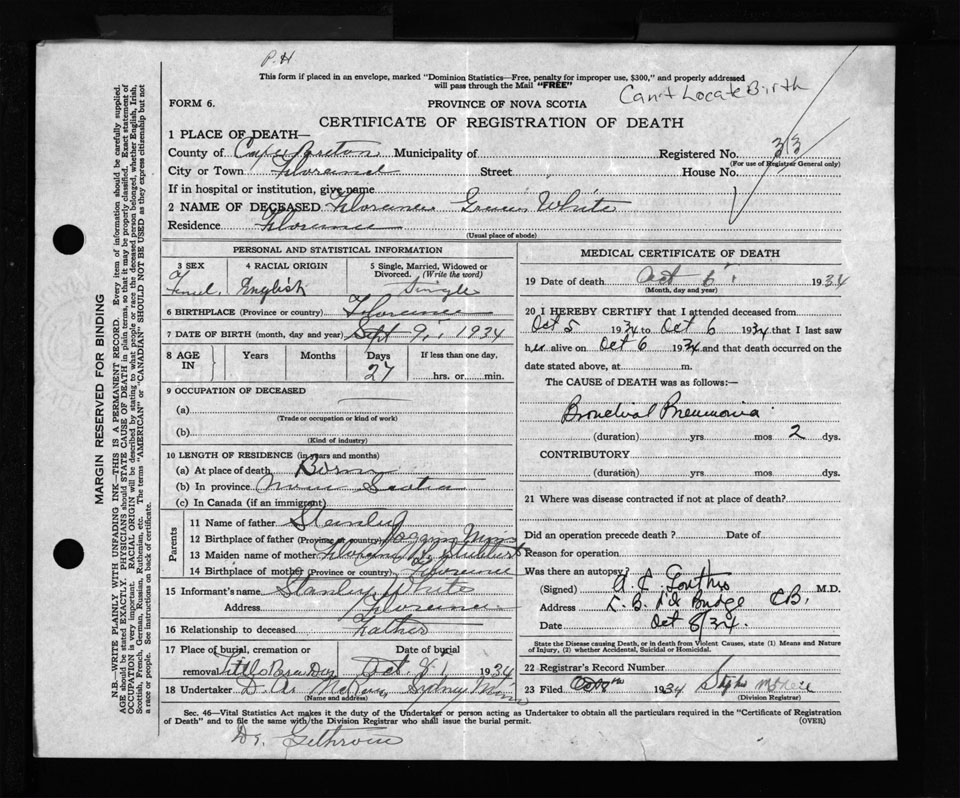 P.H
This form if placed in an envelope, marked "Dominion Statistics—Free, penalty for improper use, $300," and properly addressed
will pass through the Mail "FREE"
Can't Locate Birth
FORM 6.
PROVINCE OF NOVA SCOTIA
CERTIFICATE OF REGISTRATION OF DEATH
1 PLACE OF DEATH—
County of Cape Breton Municipality of Registered No. 33
(For use of Registrar General only)
City or Town Florence Street House No.
If in hospital or institution, give name
2 NAME OF DECEASED Florence White
Residence Florence
(Usual place of abode)
PERSONAL AND STATISTICAL INFORMATION
3 SEX 4 RACIAL ORIGIN 5 Single, Married, Widowed or Divorced. (Write the word)
Femal. English Single
6 BIRTHPLACE (Province or country) Florence
7 DATE OF BIRTH (month, day and year) Sept 9, 1934
8 AGE IN Years Months Days If less than one day,
27 hrs. or min.
9 OCCUPATION OF DECEASED
(a)
(Trade or occupation or kind of work)
(b)
(Kind of industry)
10 LENGTH OF RESIDENCE (in years and months)
(a) At place of death Born
(b) In province Nova Scotia
(c) In Canada (if an immigrant)
Parents
11 Name of father Stanley
12 Birthplace of father (Province or country) Joggins Mines
13 Maiden name of mother Stubbert
14 Birthplace of mother (Province or country) Florence
15 Informant's name Stanley White
Address Florence
16 Relationship to deceased Father
17 Place of burial, cremation or removal Date of burial
Little Bras Dor Oct. 8, 1934
18 Undertaker Sydney Mines
(Name and address)
MEDICAL CERTIFICATE OF DEATH
19 Date of death Oct 6 1934
(Month, day and year)
20 I HEREBY CERTIFY that I attended deceased from
Oct 5 1934 to Oct 6 1934 that I last saw
her alive on Oct 6 1934 and that death occurred on the
date stated above, at m.
The CAUSE of DEATH was as follows:—
Bronchial Pneumonia
(duration) yrs. mos 2 dys.
CONTRIBUTORY
(duration) yrs. mos. dys.
21 Where was disease contracted if not at place of death?
Did an operation precede death ? Date of
Reason for operation
Was there an autopsy?
(Signed) M.D.
Address Bridge C.B.
Date Oct 8/34.
State the Disease causing Death, or in death from Violent Causes, state (1) Means and Nature
of Injury, (2) whether Accidental, Suicidal or Homicidal.
22 Registrar's Record Number
23 Filed Oct 8th 1934
(Division Registrar)
Sec. 46—Vital Statistics Act makes it the duty of the Undertaker or person acting as Undertaker to obtain all the particulars required in the "Certificate of Registration
of Death" and to file the same with the Division Registrar who shall issue the burial permit. (OVER)
Dr.
MARGIN RESERVED FOR BINDING
N.B.—WRITE PLAINLY WITH UNFADING INK—THIS IS A PERMANENT RECORD. Every item of information should be carefully supplied.
AGE should be stated EXACTLY. PHYSICIANS should STATE CAUSE OF DEATH in plain terms, so that it may be properly classified. Exact statement of
OCCUPATION is very important. RACIAL ORIGIN will be described by stating to what people or race the deceased person belonged, whether English, Irish,
Scottish, French, German, Russian, Ruthenian, etc. The terms "AMERICAN" or "CANADIAN" SHOULD NOT BE USED as they express citizenship but not
a race or people. See instructions on back of certificate.